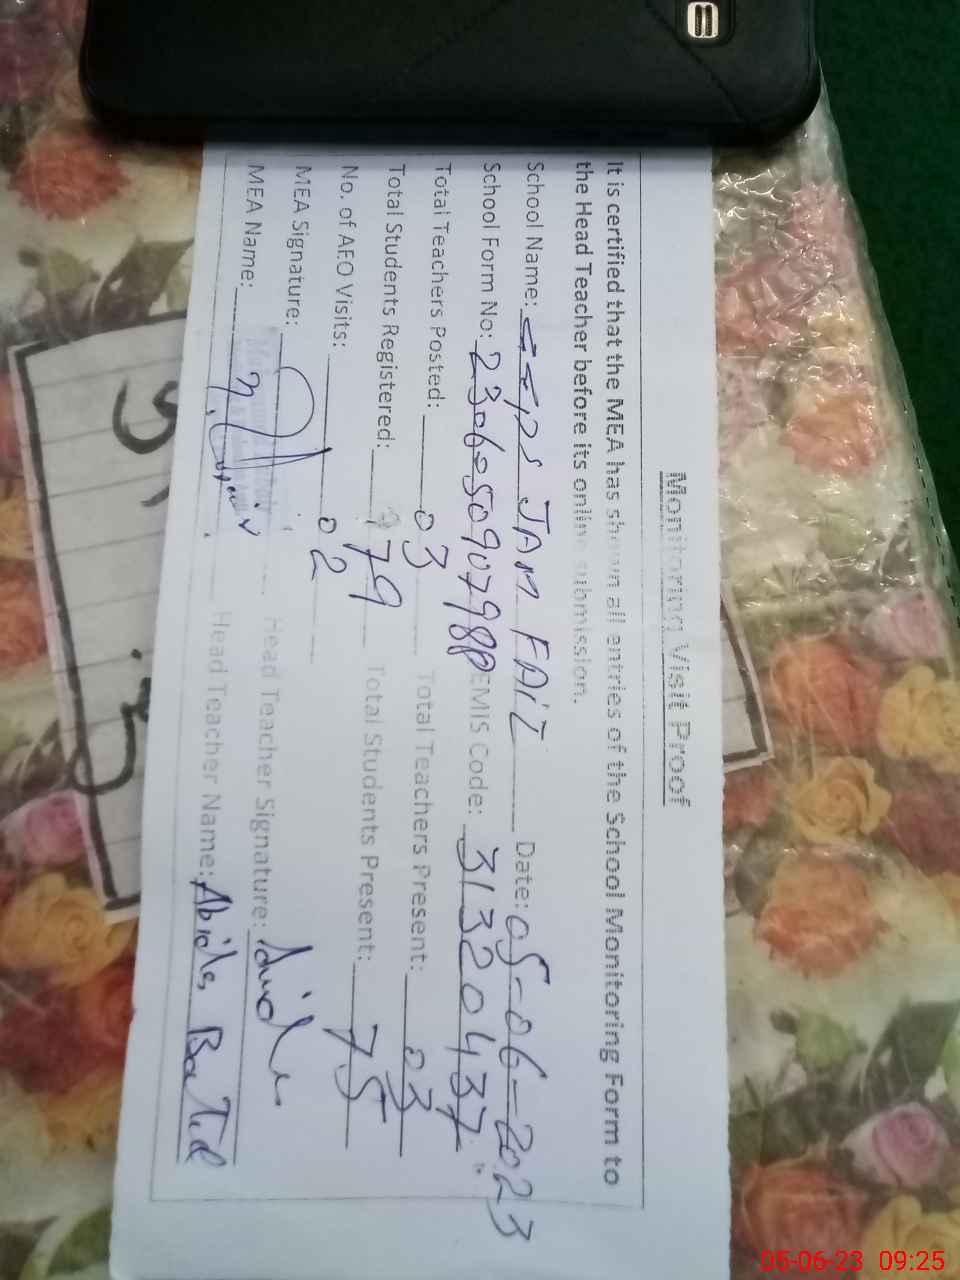 Monitoring Visit Proof
It is certified that the MEA has shown all entries of the School Monitoring Form to
the Head Teacher before its online submission.
School Name: JAM FAIZ Date: 05-06-2023
School Form No: EMIS Code: 31320437
Total Teachers Posted: 03 Total Teachers Present: 03
Total Students Registered: 79 Total Students Present: 75
No. of AEO Visits: 02
MEA Signature: Head Teacher Signature:
MEA Name: Head Teacher Name: Abida
05-06-23 09:25